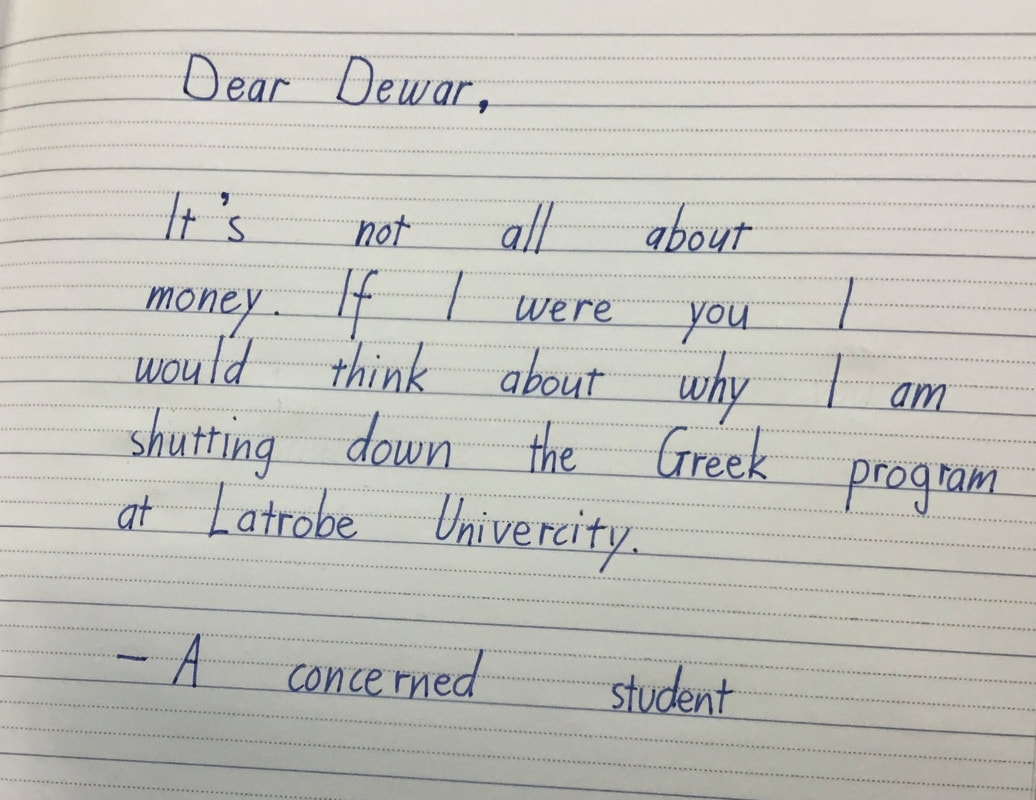 Dear Dewar,
It's not all about
money. If I were you I
would think about why I am
shutting down the Greek program
at Latrobe Univercity.
- A concerned student